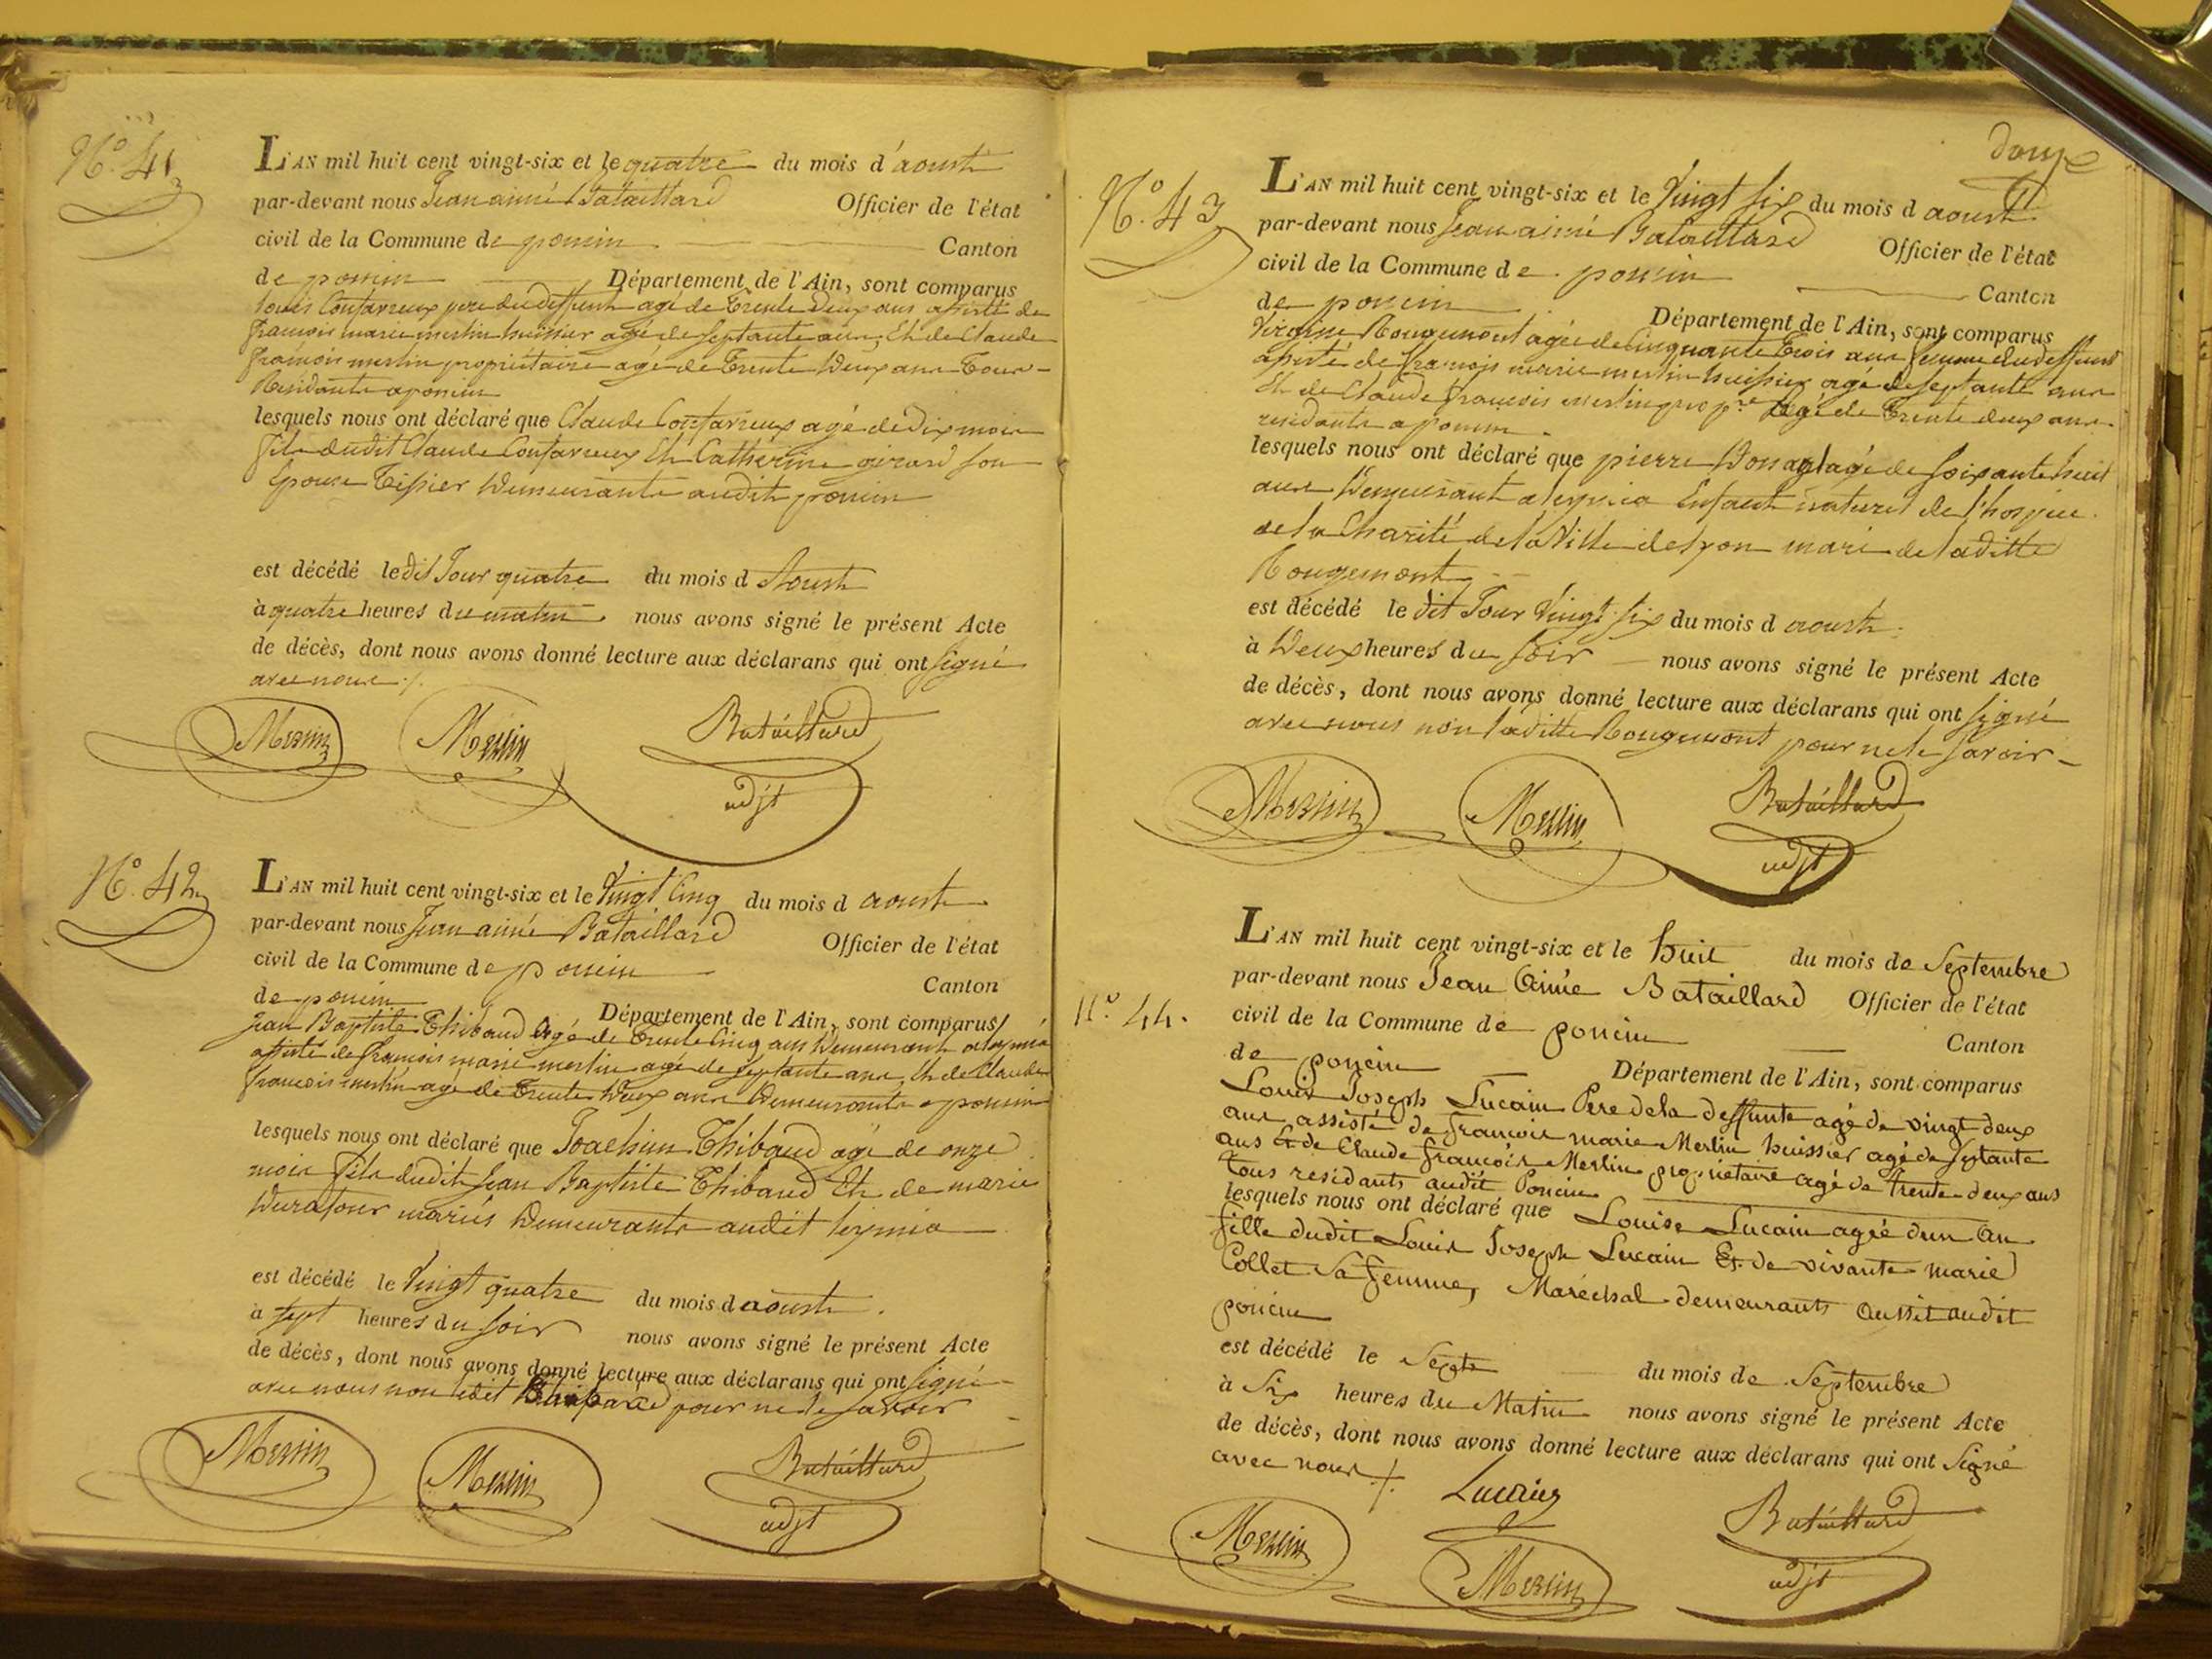 N.º 41
L'AN mil huit cent vingt-six et le quatre du mois d'aoust
par-devant nous Jean aimé Bataillard Officier de l'état
civil de la Commune de poncin Canton
de poncin Département de l'Ain, sont comparus
pere du deffunt agé de Trente Deux ans assisté de
françois marie merlin huissier agé de septante ans, Et de Claude
françois merlin propriétaire agé de Trente Deux ans Tous
Residants a poncin
lesquels nous ont déclaré que Claude agé de dix mois
fils dudit Claude Et Catherine girard son
Epouse Tissier Demeurants audit poncin
est décédé le dit Jour quatre du mois d Aoust
à quatre heures du matin nous avons signé le présent Acte
de décès, dont nous avons donné lecture aux déclarans qui ont signé
avec nous ./.
Merlin Merlin Bataillard
adjt
N.º 42
L'AN mil huit cent vingt-six et le Vingt Cinq du mois d aoust
par-devant nous Jean aimé Bataillard Officier de l'état
civil de la Commune de poncin Canton
de poncin Département de l'Ain, sont comparus
Jean Baptiste Thibaud Agé de Trente Cinq ans Demeurant a leymia
assisté de françois marie merlin agé de septante ans, Et de Claude
françois merlin agé de Trente Deux ans Demeurants a poncin
lesquels nous ont déclaré que Joachim Thibaud agé de onze
mois fils dudit Jean Baptiste Thibaud Et de marie
Duratour mariés Demeurants audit leymia
est décédé le Vingt quatre du mois d aoust.
à sept heures du soir nous avons signé le présent Acte
de décès, dont nous avons donné lecture aux déclarans qui ont signé
avec nous non ledit pour ne le savoir
Merlin Merlin Bataillard
adjt
douze
N.º 43
L'AN mil huit cent vingt-six et le Vingt six du mois d aoust
par-devant nous Jean aimé Bataillard Officier de l'état
civil de la Commune de poncin Canton
de poncin Département de l'Ain, sont comparus
Rougemont agée de Cinquante Trois ans femme du deffunt
assisté de françois marie merlin huissier agé de septante ans
Et de Claude françois merlin pro pre Agé de Trente deux ans
residants a poncin.
lesquels nous ont déclaré que pierre agé de soixante huit
ans Demeurant a leymia Enfant naturel de l'hospice
de la Charité de la Ville de lyon mari de laditte
Rougemont
est décédé le dit Jour Vingt six du mois d aoust.
à Deux heures du soir nous avons signé le présent Acte
de décès, dont nous avons donné lecture aux déclarans qui ont signé
avec nous non laditte Rougemont pour ne le savoir
Merlin Merlin Bataillard
adjt
N.º 44.
L'AN mil huit cent vingt-six et le huit du mois de Septembre
par-devant nous Jean Aimé Bataillard Officier de l'état
civil de la Commune de poncin Canton
de poncin Département de l'Ain, sont comparus
Louis Joseph Lucain Pere de la deffunte agé de vingt deux
ans assisté de françois marie Merlin huissier agé de septante
ans Et de Claude françois Merlin propriétaire agé de trente deux ans
tous residants audit Poncin
lesquels nous ont déclaré que Louise Lucain agée dun an
fille dudit Louis Joseph Lucain Et de vivante marie
Collet sa femme, Maréchal demeurants aussit audit
poncin
est décédé le Sept du mois de Septembre
à Six heures du Matin nous avons signé le présent Acte
de décès, dont nous avons donné lecture aux déclarans qui ont Signé
avec nous ./.
Merlin Merlin Bataillard
adjt